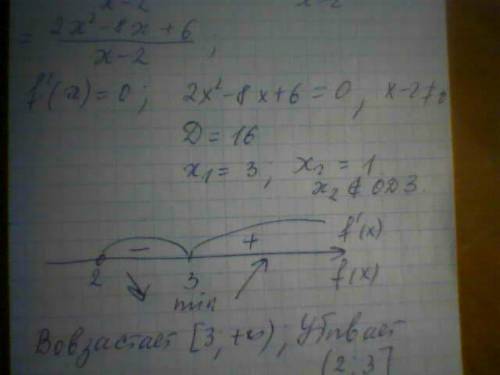 x-2 x-2
= (2x²-8x+6)/(x-2) ;
f'(x)=0; 2x²-8x+6=0, x-2≠0
D=16
x₁=3; x₂=1
x₂∉ОДЗ.
- + f'(x)
2 3 f(x)
min
Вовзастает [3,+∞), Убывает
(2;3]